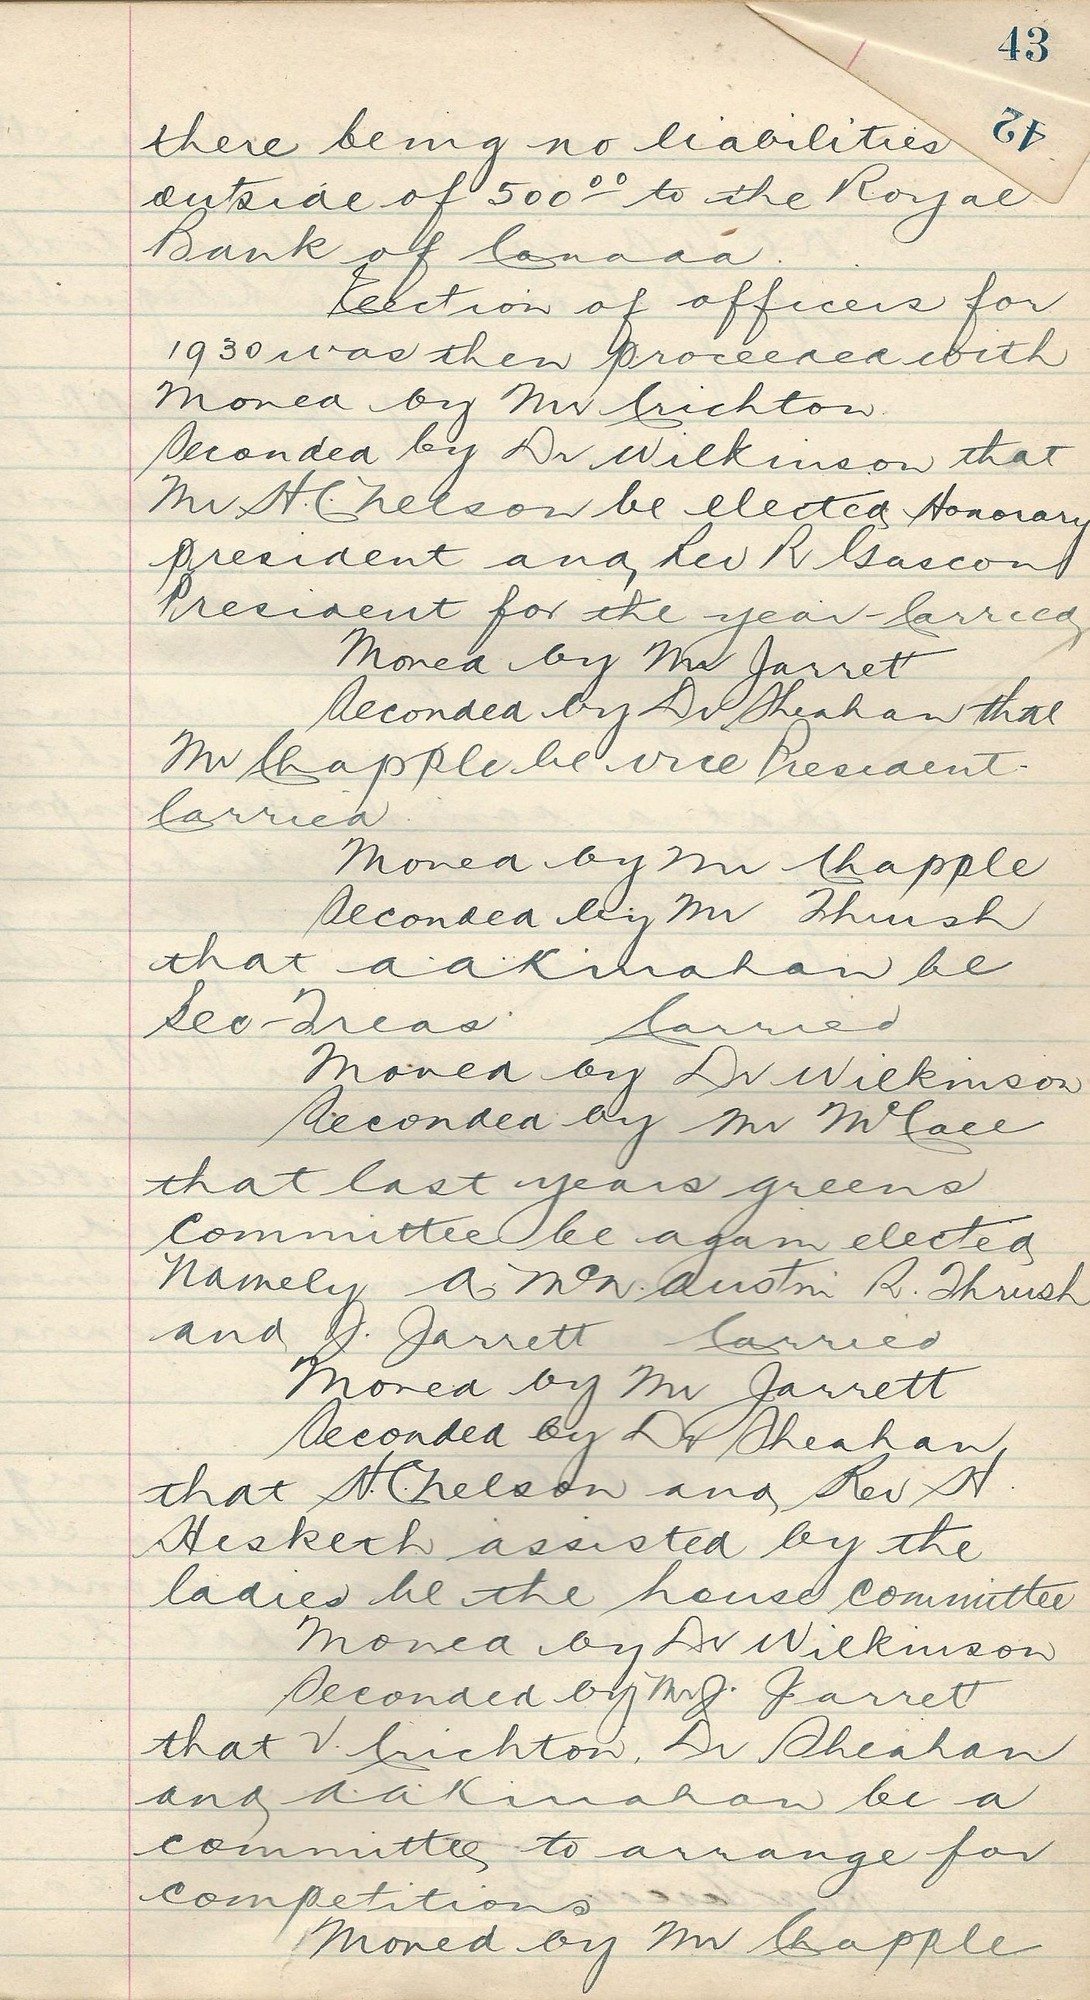 43
42
there being no liabilities
outside of 500⁰⁰ to the Royal
Bank of Canada.
Election of officers for
1930 was then proceeded with
Moved by Mr Crichton
Seconded by Dr Wilkinson that
Mr H.C. Nelson be elected Honorary
president and Rev R Gascon
President for the year - Carried
Moved by Mr Jarrett
Seconded by Dr Sheahan that
Mr Chapple be vice President.
Carried.
Moved by Mr Chapple
Seconded by Mr Thrush
that A. A. Kinahan be
Sec-Treas. Carried
Moved by Dr Wilkinson
Seconded by Mr McCall
that last years greens
Committee be again elected
Namely A. McN. Austin R. Thrush
and J. Jarrett Carried
Moved by Mr Jarrett
Seconded by Dr Sheahan
that H.C. Nelson and Rev H.
Hesketh assisted by the
ladies be the house Committee
Moved by Dr Wilkinson
Seconded by Mr J. Jarret
that V. Crichton, Dr Sheahan
and A A Kinahan be a
committee to arrange for
competitions
Moved by Mr Chapple